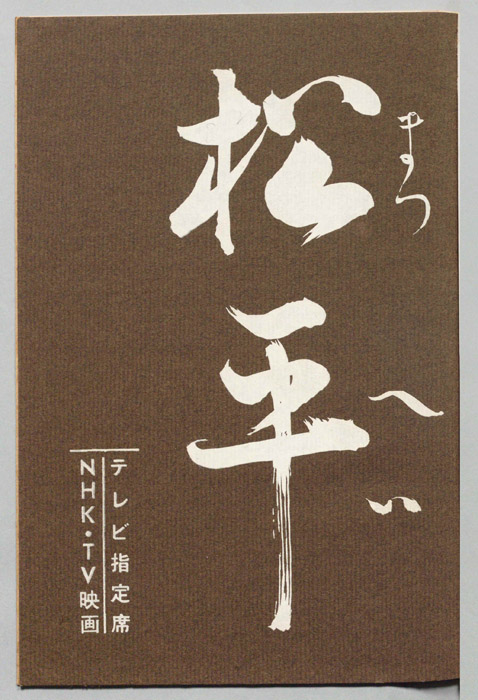 まつ へい
松平
テレビ指定席
NHK・TV映画